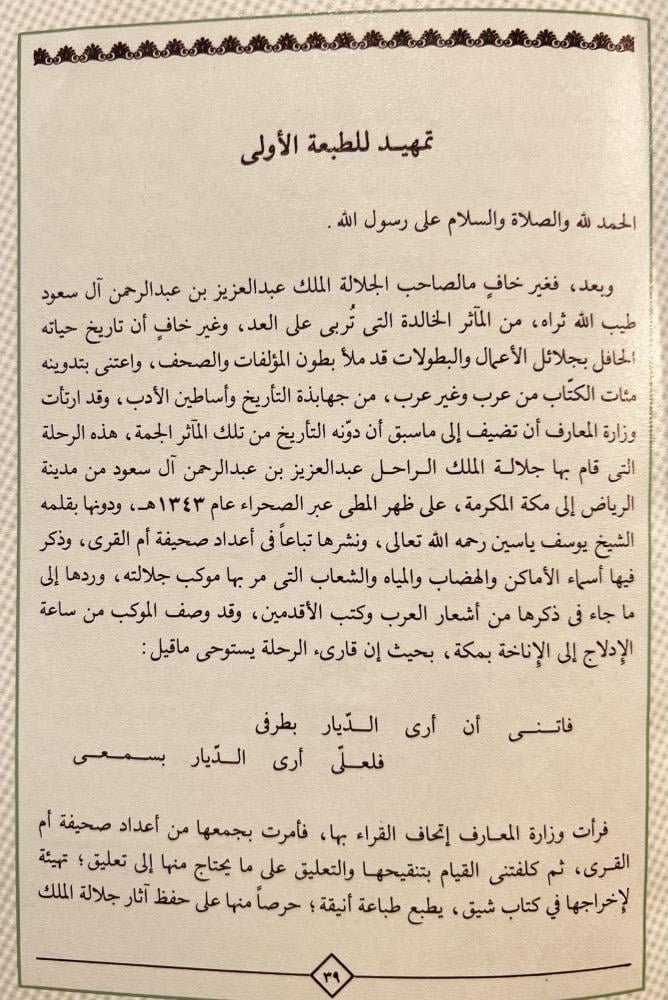 تمهيد للطبعة الأولى
الحمد لله والصلاة والسلام على رسول الله .
وبعد، فغير خافٍ مالصاحب الجلالة الملك عبدالعزيز بن عبدالرحمن آل سعود
طيب الله ثراه، من المآثر الخالدة التى تُربى على العد، وغير خافٍ أن تاريخ حياته
الحافل بجلائل الأعمال والبطولات قد ملأ بطون المؤلفات والصحف، واعتنى بتدوينه
مئات الكتّاب من عرب وغير عرب، من جهابذة التأريخ وأساطين الأدب، وقد ارتأت
وزارة المعارف أن تضيف إلى ماسبق أن دوّنه التأريخ من تلك المآثر الجمة، هذه الرحلة
التى قام بها جلالة الملك الراحل عبدالعزيز بن عبدالرحمن آل سعود من مدينة
الرياض إلى مكة المكرمة، على ظهر المطى عبر الصحراء عام ١٣٤٣هـ، ودونها بقلمه
الشيخ يوسف ياسين رحمه الله تعالى، ونشرها تباعاً فى أعداد صحيفة أم القرى، وذكر
فيها أسماء الأماكن والهضاب والمياه والشعاب التى مر بها موكب جلالته، وردها إلى
ما جاء فى ذكرها من أشعار العرب وكتب الأقدمين، وقد وصف الموكب من ساعة
الإدلاج إلى الإناخة بمكة، بحيث إن قارىء الرحلة يستوحى ماقيل :
فاتنى أن أرى الدّيار بطرفى
فلعلّى أرى الدّيار بسمعى
فرأت وزارة المعارف إتحاف القراء بها، فأمرت بجمعها من أعداد صحيفة أم
القرى، ثم كلفتنى القيام بتنقيحها والتعليق على ما يحتاج منها إلى تعليق؛ تهيئة
لإخراجها في كتاب شيق، يطبع طباعة أنيقة؛ حرصاً منها على حفظ آثار جلالة الملك
٣٩